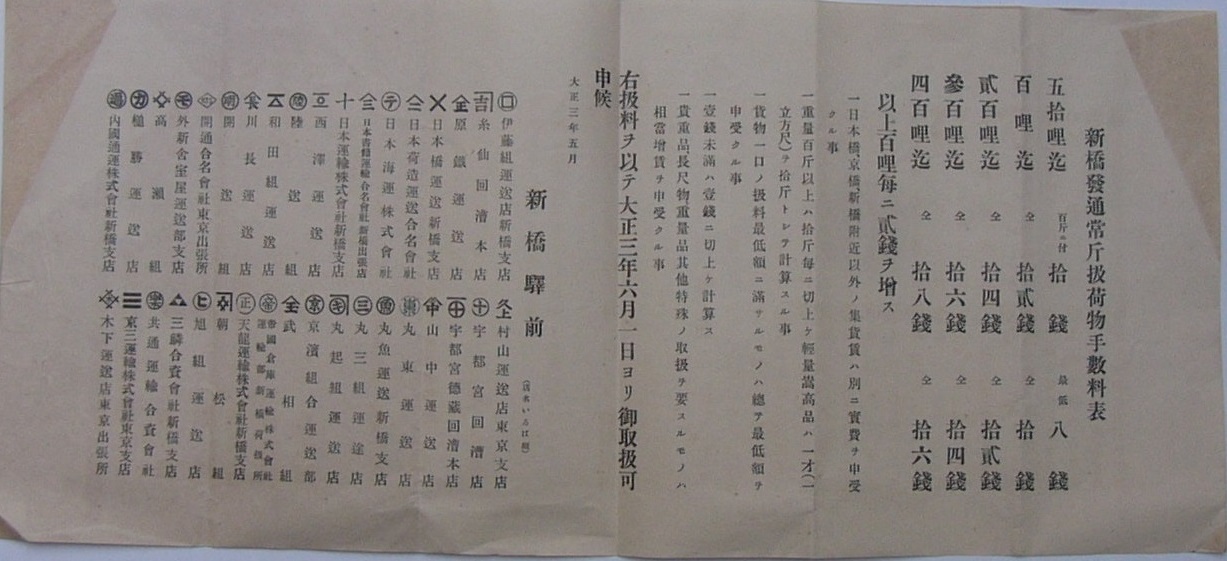 新橋發通常斤扱荷物手數料表
五拾哩迄 百斤ニ付 拾錢 最低 八錢
百哩迄 仝 拾貳錢 仝 拾錢
貳百哩迄 仝 拾四錢 仝 拾貳錢
參百哩迄 仝 拾六錢 仝 拾四錢
四百哩迄 仝 拾八錢 仝 拾六錢
以上百哩每ニ貳錢ヲ增ス
一日本橋、京橋、新橋附近以外ノ集貨賃ハ別ニ實費ヲ申受
クル事
一重量百斤以上ハ拾斤每ニ切上ケ輕量嵩高品ハ一才(一
立方尺)ヲ拾斤トシテ計算スル事
一貨物一口ノ扱料最低額ニ滿サルモノハ總テ最低額ヲ
申受クル事
一壹錢未滿ハ壹錢ニ切上ケ計算ス
一貴重品、長尺物、重量品其他特殊ノ取扱ヲ要スルモノハ
相當增賃ヲ申受クル事
右扱料ヲ以テ大正三年六月一日ヨリ御取扱可
申候
大正三年五月
新橋驛前
(店名いろは順)
伊藤組運送店新橋支店
糸仙回漕本店
金原鐵運送店
日本橋運送新橋支店
日本荷造運送合名會社
日本海運株式會社
日本書籍運輸合名會社新橋出張店
日本運輸株式會社新橋支店
西澤運送店
陸送組
和田組運送店
川長運送店
開送組
開通合名會社東京出張所
外新舍室屋運送部支店
高瀨組
樋勝運送店
內國通運株式會社新橋支店
村山運送店東京支店
宇都宮回漕店
宇都宮德藏回漕本店
山中運送店
丸東運送店
丸魚運送新橋支店
丸三組運送店
丸起組運送店
京濱組合運送部
武相組
帝國倉庫運輸株式會社
運輸部新橋荷扱所
天龍運輸株式會社新橋支店
朝松組
旭組運送店
三鱗合資會社新橋支店
共通運輸合資會社
京三運輸株式會社東京支店
木下運送店東京出張所